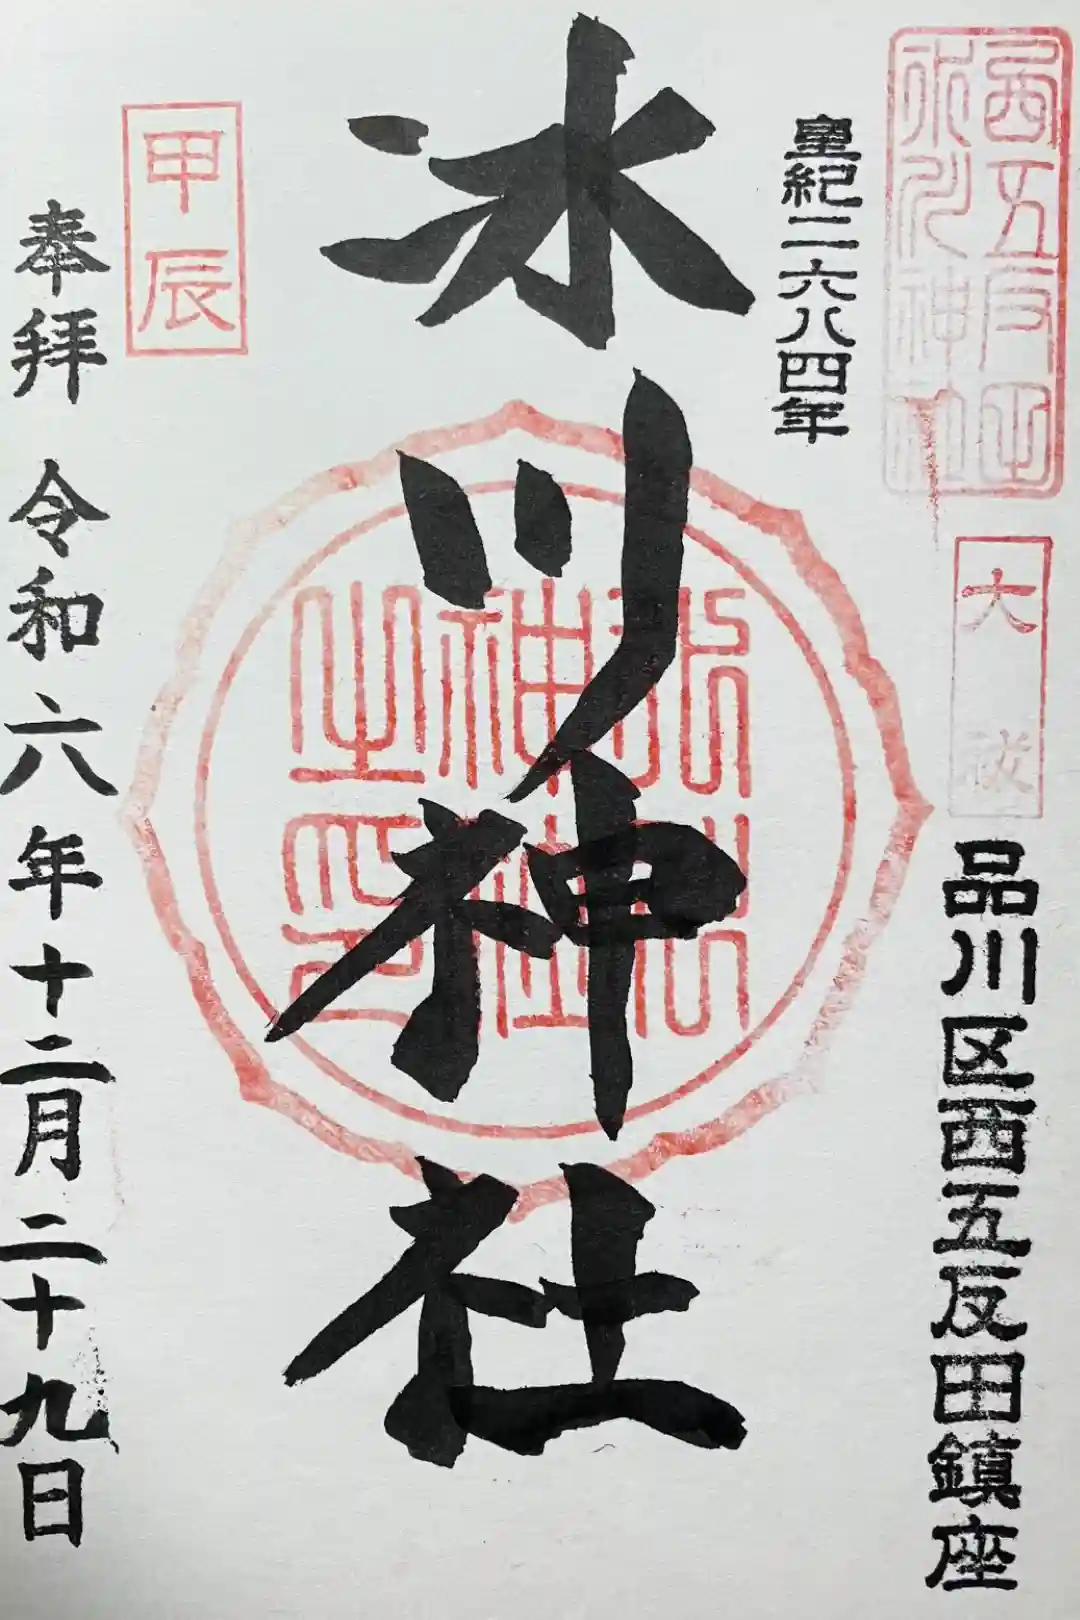 西五反田
氷川神社
大祓
品川区西五反田鎮座
皇紀二六八四年
氷川神社
氷川
神社
之印
甲辰
奉拝 令和六年十二月二十九日